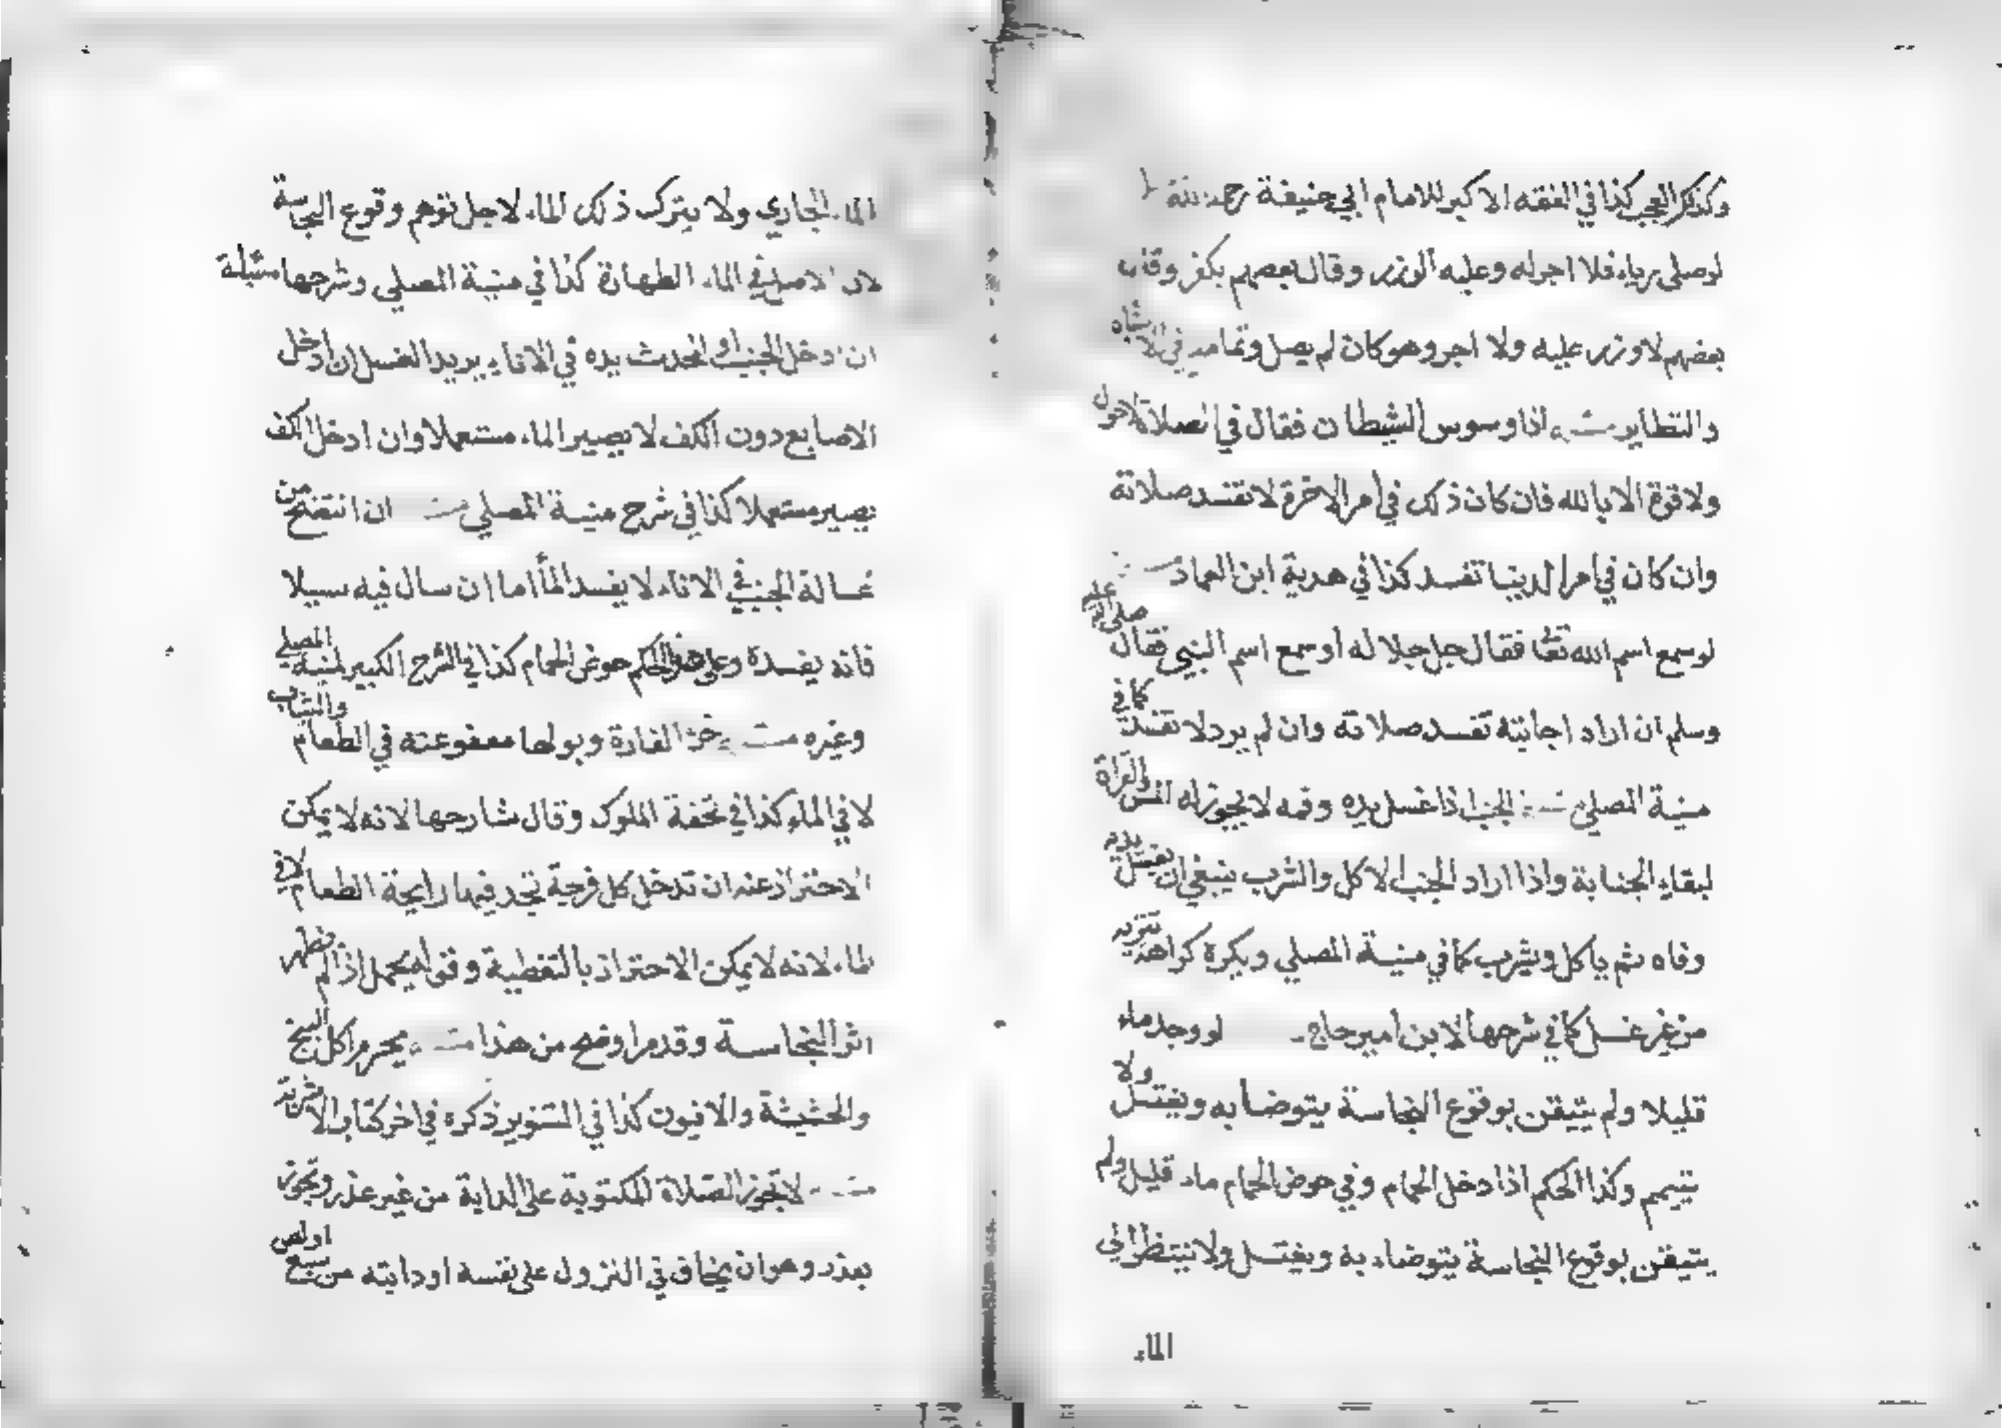 وكذلك العجب كذا في الفقه الاكبر للامام ابي حنيفة رحمه الله
لو صلى رياء فلا اجر له وعليه الوزر وقال بعضهم يكفر وقال
بعضهم لا وزر عليه ولا اجر وهو كان لم يصل وتمامه في الاشباه
والنظاير مسئلة اذا وسوس الشيطان فقال في الصلاة لا حول
ولا قوة الا بالله فان كان ذلك في امر الاخرة لا تفسد صلاته
وان كان في امر الدنيا تفسد كذا في هدية ابن العماد مسئلة
لو سمع اسم الله تعا فقال جل جلاله او سمع اسم النبي فقال صلى الله عليه
وسلم ان اراد اجابته تفسد صلاته وان لم يرد لا تفسد كما في
منية المصلي مسئلة الجنب اذا غسل يده وفمه لا يجوز له المس والقراة
لبقاء الجنابة واذا اراد الجنب الاكل والشرب ينبغي ان يغسل يديه
وفاه ثم ياكل ويشرب كما في منية المصلي ويكره كراهة تنزيه
من غير غسل كما في شرحها لابن امير حاج لو وجد ماء
قليلا ولم يتيقن بوقوع النجاسة يتوضا به ويغتسل ولا
يتيمم وكذا الحكم اذا دخل الحمام وفي حوض الحمام ماء قليل ولم
يتيقن بوقوع النجاسة يتوضاء به ويغتسل ولا ينتظر الى
الماء
الماء الجاري ولا يترك ذلك الماء لاجل توهم وقوع النجاسة
لان الاصل في الماء الطهارة كذا في منية المصلي وشرحها مسئلة
ان ادخل الجنب او المحدث يده في الاناء يريد الغسل ان ادخل
الاصابع دون الكف لا يصير الماء مستعملا وان ادخل الكف
يصير مستعملا كذا في شرح منية المصلي مسئلة ان انتضح من
غسالة الجنب في الاناء لا يفسد الماء اما ان سال فيه سيلا
فانه يفسده وعلى هذا الحكم حوض الحمام كذا في الشرح الكبير لمنية المصلي
وغيره مسئلة خرء الفارة وبولها معفو عنه في الطعام والشاب
لا في الماء كذا في تحفة الملوك وقال شارحها لانه لا يمكن
الاحتراز عنه ان تدخل كل فرجة تجد فيها رايحة الطعام لا في
الماء لانه لا يمكن الاحتراز بالتغطية وقوله يحمل اذا لم يظهر
اثر النجاسة وقد مر اوضح من هذا مسئلة يحرم اكل البنج
والحشيشة والافيون كذا في التنوير ذكره في اخر كتاب الاشربة
مسئلة لا تجوز الصلاة المكتوبة على الدابة من غير عذر وتجوز
بعذر وهو ان يخاف في النزول على نفسه او دابته من سبع او لص